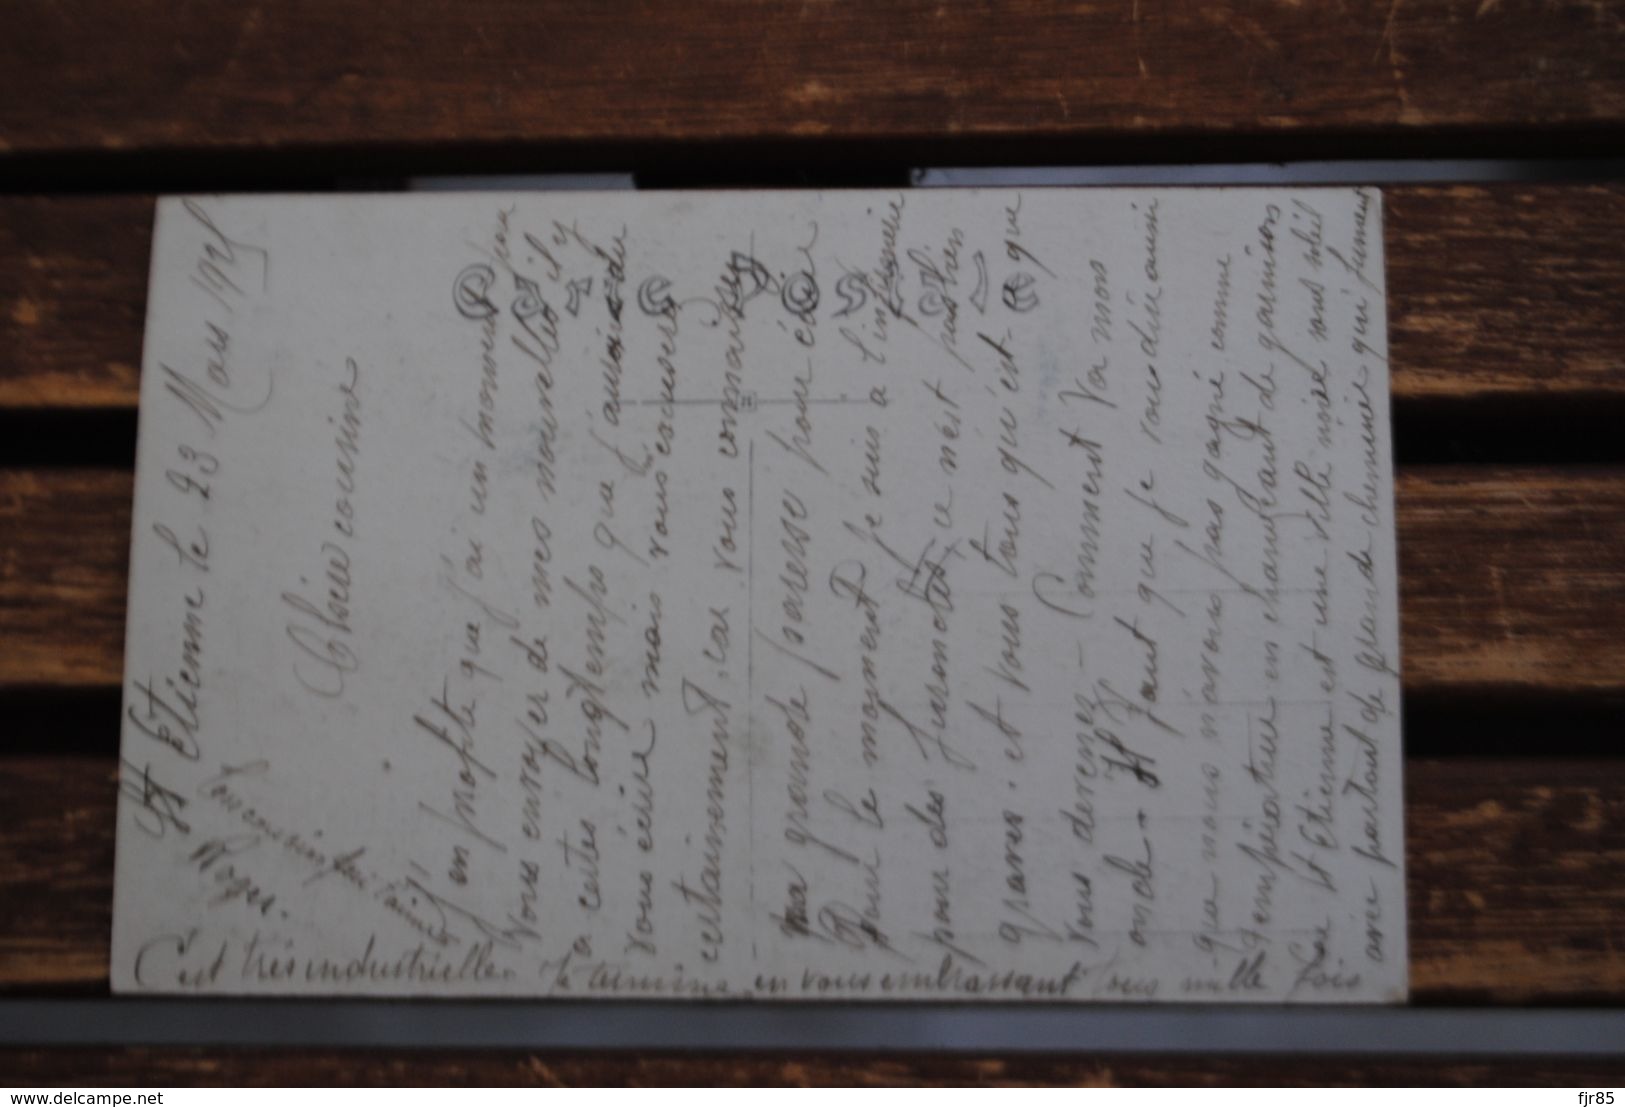 St Etienne le 23 Mars 192
Chère cousine
J'en profite que j'ai un moment pour
vous envoyer de mes nouvelles il y
a certes longtemps que j'aurais du
vous écrire mais vous m'excuserez
certainement, car vous connaissez
ma grande paresse pour écrire
Pour le moment je suis a l'infirmerie
pour des furoncles, ce n'est pas bien
grave. et vous tous qu'est-ce que
vous devenez - Comment va mon
oncle. Il faut que je vous dise aussi
que nous n'avons pas gagné comme
température en changeant de garnison
car St Etienne est une ville noire sans soleil
avec partout de grande cheminée qui fument
C'est très industrielle. Je termine en vous embrassant tous mille fois
Ton cousin qui t'aime
Roger.
CARTE POSTALE
www.delcampe.net
fjr85